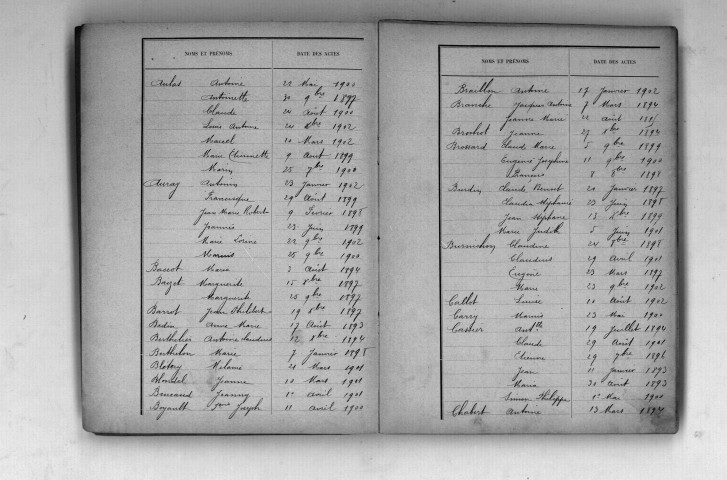 NOMS ET PRÉNOMS DATE DES ACTES
Aulas Antoine 22 Mai 1900
Antoinette 30 9bre 1897
Claude 24 Août 1900
Louis Antoine 24 Xbre 1902
Marcel 10 Mars 1902
Marie Etiennette 9 Août 1899
Marius 25 7bre 1900
Auray Antonin 23 Janvier 1902
Francisque 29 Août 1899
Jean Marie Robert 9 Février 1895
Joannès 23 Juin 1899
Marie 22 9bre 1902
Marius 25 9bre 1900
Bassot Maria 3 Août 1894
Bazet Marguerite 15 Xbre 1897
Marguerite 25 9bre 1897
Barrot Jean Philibert 19 Xbre 1897
Bedin Anne Marie 17 Août 1893
Berthelier Antoine Claudius 12 Xbre 1894
Berthelon Marie 7 Janvier 1898
Mélanie 21 Mars 1901
Blondel Jeanne 10 Mars 1901
Jeanny 1er Avril 1901
Boyault Joseph 11 Avril 1900
NOMS ET PRÉNOMS DATE DES ACTES
Braillon Antoine 17 Janvier 1902
Branche Jacques Antoine 7 Mars 1894
Jeanne Marie Août
Brochot Jeanne 27 Xbre 1894
Brossard Claude Marie 5 9bre 1899
Eugénie Joséphine 11 9bre 1900
8 8bre 1898
Burdin Claude Benoit 21 Janvier 1897
Claudia Stéphanie 23 Juin 1898
Jean Stéphane 13 Xbre 1899
Marie Judith 5 Juin 1901
Burnichon Claudine 24 8bre 1898
Claudius 29 Avril 1901
Eugène 23 Mars 1897
Marie 23 9bre 1902
Callot Louise 10 Août 1902
Carry Marius 13 Mai 1900
Castier Antte 19 Juillet 1894
Claude 29 Août 1901
Etienne 29 7bre 1896
Jean 11 Janvier 1893
Maria 30 Août 1893
Simon Philippe 1er Mai 1900
Chabert Antoine 13 Mars 1894